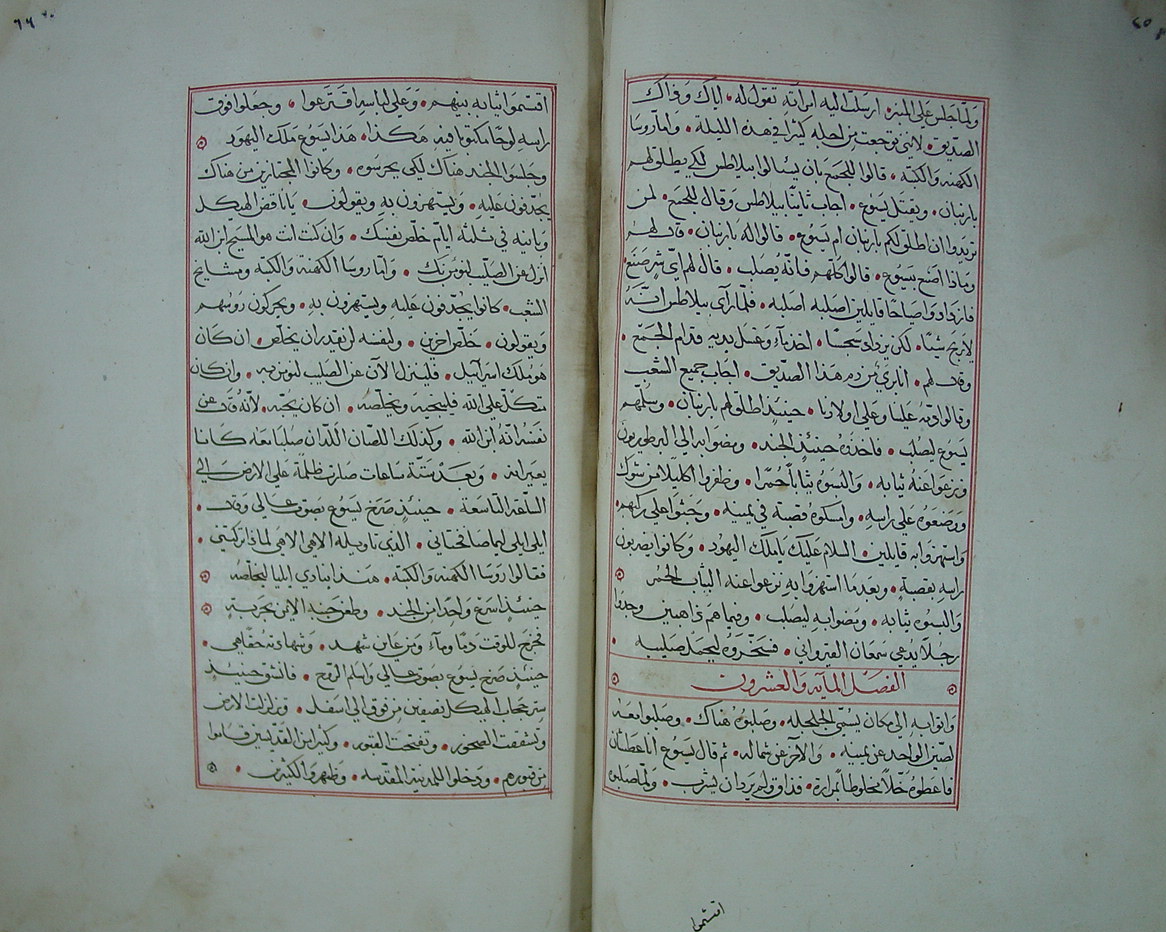 ٢٥
ولما جلس على المنبر • ارسلت اليه امراته تقول له • اياك وذاك
الصديق • لانني توجعت من اجله كثيرا في هذه الليلة • واما روسا
الكهنة والكتبة • قالوا للجمع بان يسالوا بيلاطس لكي يطلق لهم
بارنبان • ويقتل يسوع • اجاب ثانيًا بيلاطس وقال للجمع • لمن
تريدوا ان اطلق لكم بارنبان ام يسوع • قالوا له بارنبان • قال لهم
وماذا اصنع بيسوع • قالوا كلهم فانه يصلب • قال لهم اي شر صنع
فازدادوا صياحًا قايلين اصلبه اصلبه • فلما رآى بيلاطس انه
لا يربح شيئًا • لكن يزداد سجسًا • اخذ مآء وغسل يديه قدام الجمع •
وقال لهم • انا بري من دم هذا الصديق • اجاب جميع الشعب
وقالوا دمه علينا وعلى اولادنا • حينيذٍ اطلق لهم بارنبان • وسلم
يسوع ليصلب • فاخذوه حينيذٍ الجند • ومضوا به الى ابرطوريون
ونزعوا عنه ثيابه • والبسوه ثيابًا حُمرًا • وظفروا اكليلا من شوك
ووضعوه على راسه • وامسكوه قصبة في يمينه • وجثوا على ركبهم •
واستهزوا به قايلين • السلام عليك يا ملك اليهود • وكانوا يضربون
راسه بقصبةٍ • وبعد ما استهزوا به نزعوا عنه الثياب الحمر
والبسوه ثيابه • ومضوا به ليصلب • وفيما هم ذاهبين وجدوا
رجلاً يدعي سمعان القيرواني • فسخروه ليحمل صليبه •
الفصل المايه والعشرون
واتوا به الى مكان يسمى الجلجله • وصلبوه هناك • وصلبوا معه
لصين الواحد عن يمينه • والآخر عن شماله • ثم قال يسوع انا عطشان
فاعطوه خلًّا مخلوطًا بمرارة • فذاق ولم يرد ان يشرب • ولما صلبوه
اقتسموا
٢٦
اقتسموا ثيابه بينهم • وعلى لباسه اقترعوا • وجعلوا فوق
راسه لوحًا مكتوبا فيه هكذا • هذا يسوع ملك اليهود
وجلسوا الجند هناك لكي يحرسوه • وكانوا المجتازين من هناك
يجدفون عليه • ويستهزون به ويقولون • يا ناقض الهيكل
وبانيه في ثلثه ايام خلص نفسك • وان كنت انت هو المسيح ابن الله
انزل عن الصليب لنومن بك • واما روسا الكهنة والكتبه ومشايخ
الشعب • كانوا يجدفون عليه ويستهزون به • ويحركون روسهم
ويقولون • خلص اخرين • ولنفسه لن يقدر ان يخلص • ان كان
هو ملك اسرآئيل • فلينزل الآن عن الصليب لنومن به • وان كان
متكل على الله فليحبه ويخلصه • ان كان يحبه • لانه قال عن
نفسه انه ابن الله • وكذلك اللصان اللذان صلبا معه كانا
يعيرانه • وبعد ستة ساعات صارت ظلمة على الارض الى
الساعة التاسعة • حينيذٍ صرخ يسوع بصوت عالي وقال •
ايلي ايلي ايما صافختاني • الذي تاويله الاهي الاهي لماذا تركتني •
فقالوا روسا الكهنة والكتبة • هذا ينادي ايليا ليخلصه
حينيذٍ اسرع واحد من الجند • وطعن جنبه الايمن بحربةٍ
فخرج للوقت دمًا ومآء • ومن عاين شهد • وشهادته حقًا هي •
حينيذٍ صرخ يسوع بصوت عالي واسلم الروح • فانشق حينيذٍ
ستر حجاب الهيكل نصفين من فوق الى اسفل • وتزلزلت الارض
وتشققت الصخور • وتفتحت القبور • وكثير من القديسين قاموا
من قبورهم • ودخلوا للمدينة المقدسه • وظهروا لكثيرين •